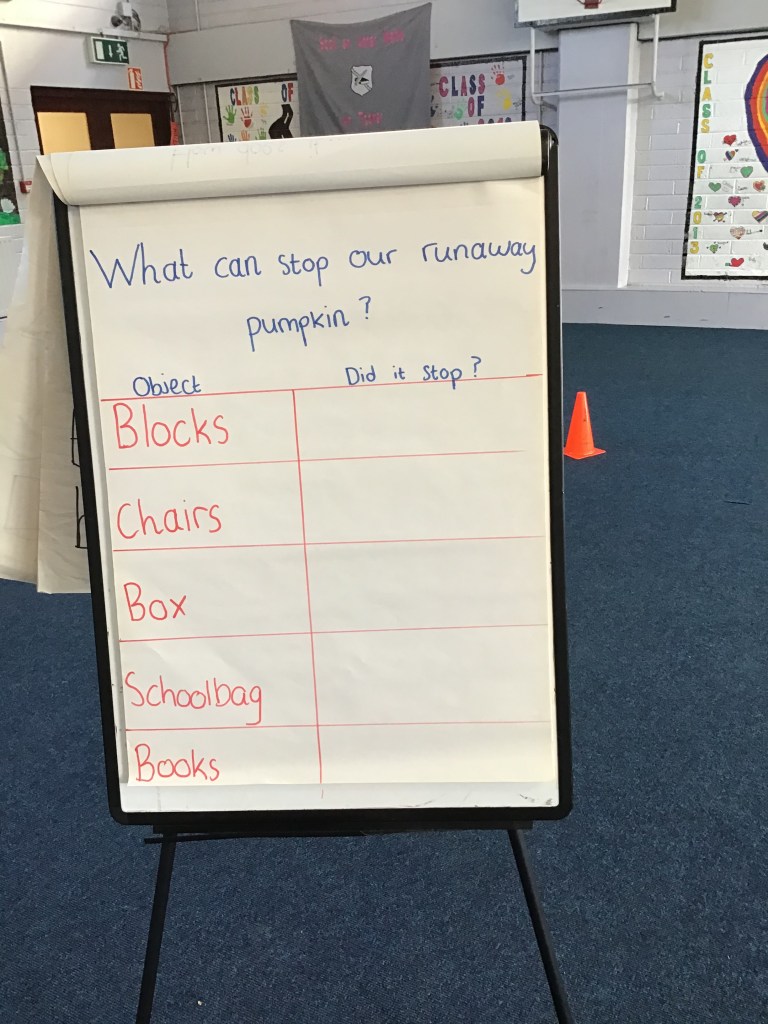 What can stop our runaway
pumpkin?
Object Did it stop?
Blocks
Chairs
Box
Schoolbag
Books
CLASS OF
CLASS
OF
CLASS OF 2013